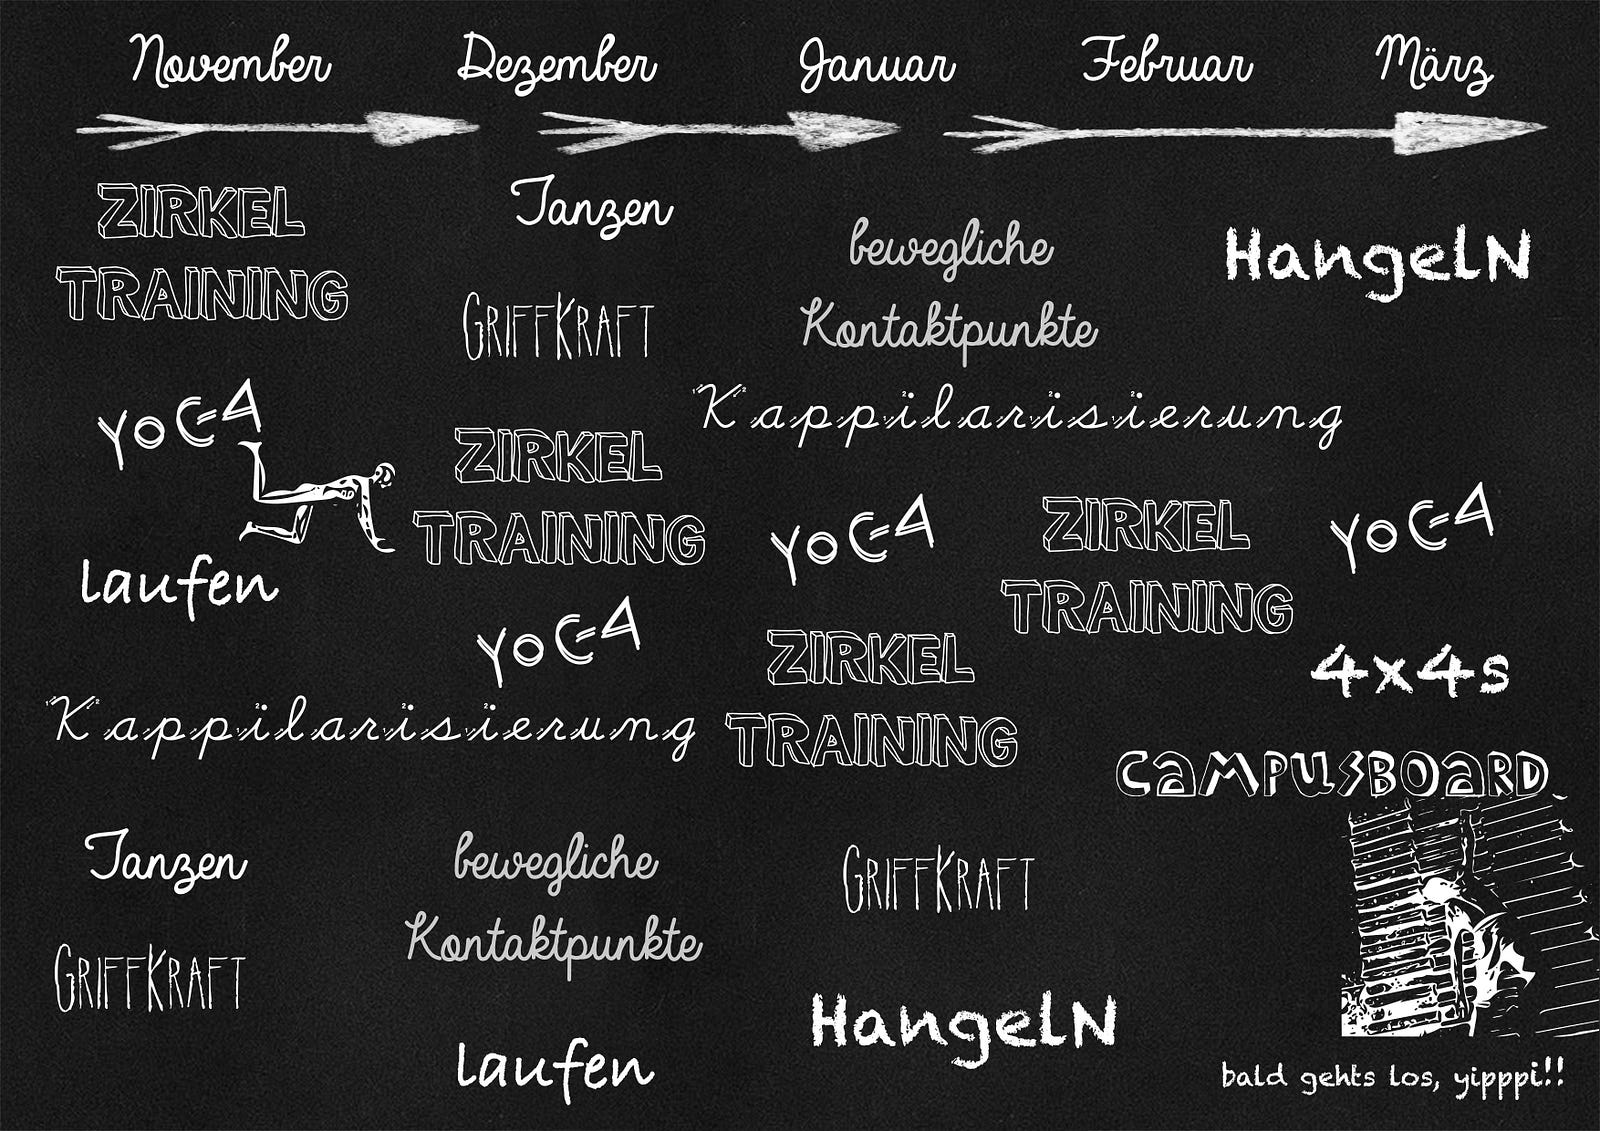 November Dezember Januar Februar März
ZIRKEL
TRAINING
YOGA
laufen
Kappilarisierung
Tanzen
GRIFFKRAFT
Tanzen
GRIFFKRAFT
ZIRKEL
TRAINING
YOGA
bewegliche
Kontaktpunkte
laufen
bewegliche
Kontaktpunkte
Kappilarisierung
YOGA
ZIRKEL
TRAINING
ZIRKEL
TRAINING
GRIFFKRAFT
HangelN
HangelN
YOGA
4x4s
CAMPUSBOARD
bald gehts los, yipppi!!